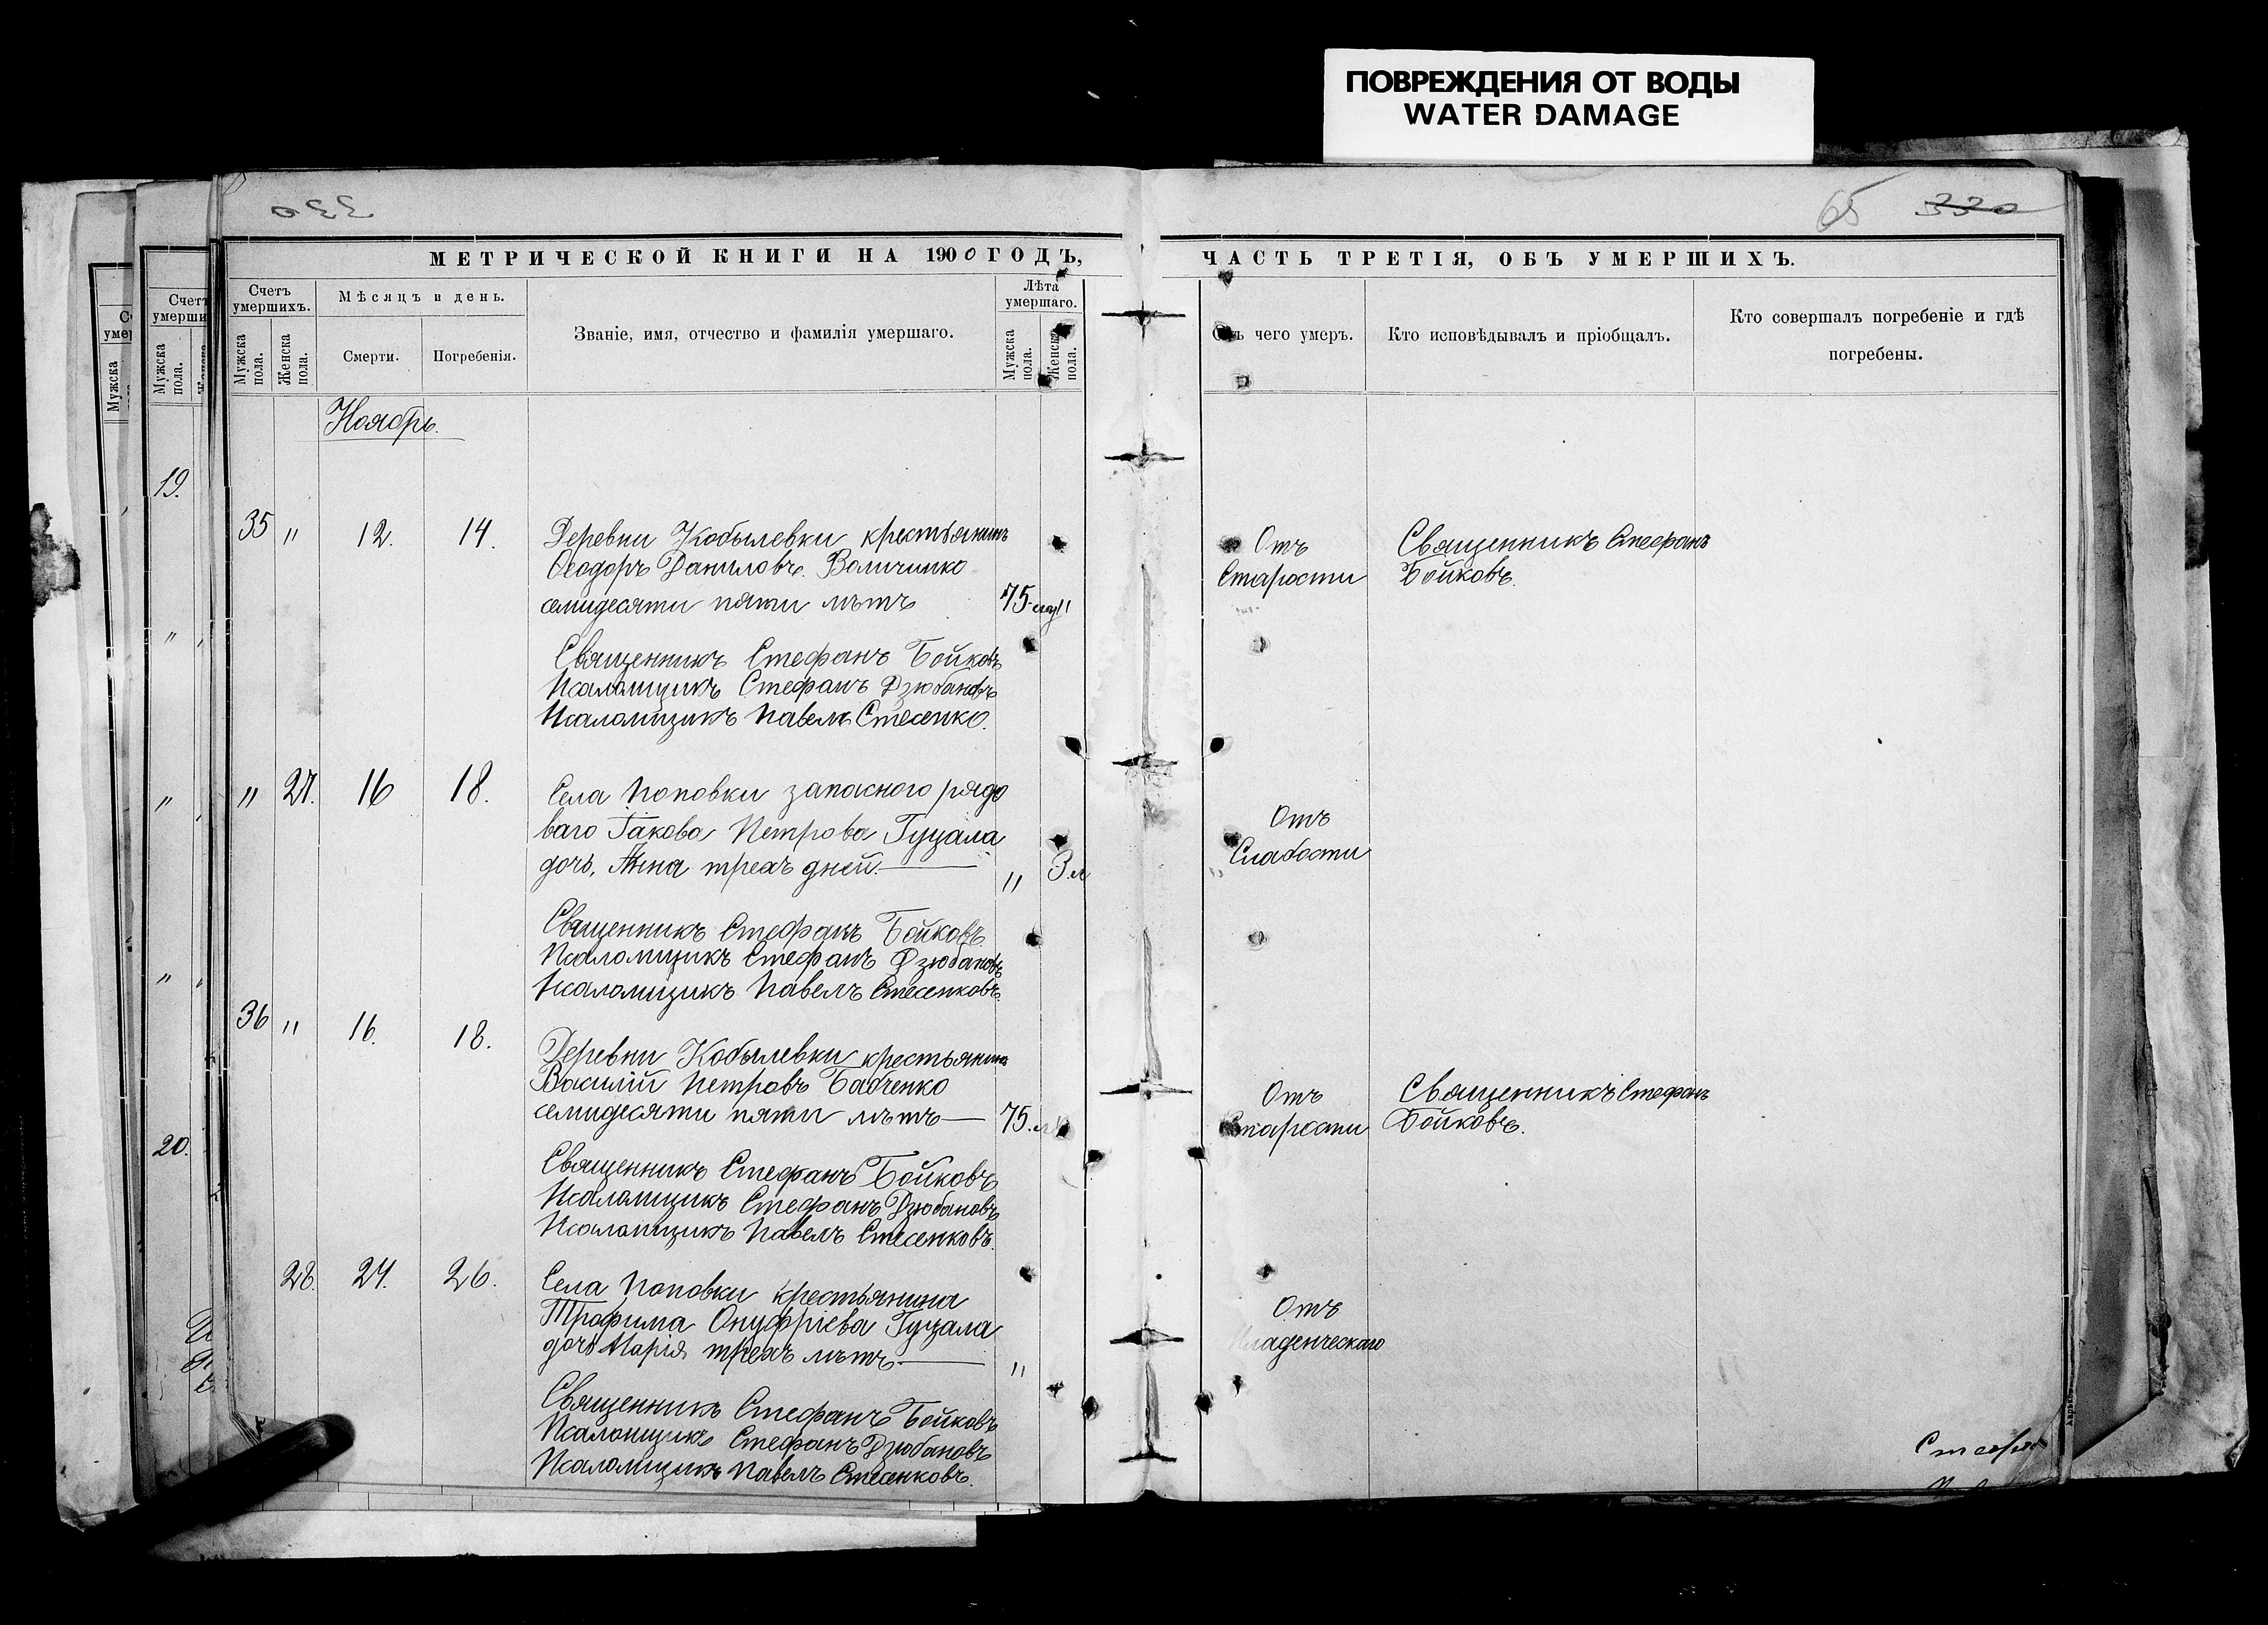 ПОВРЕЖДЕНИЯ ОТ ВОДЫ
WATER DAMAGE
330
65 330
МЕТРИЧЕСКОЙ КНИГИ НА 1900 ГОДЪ,
Счетъ умершихъ.
Мужска пола.
Женска пола.
Мѣсяцъ и день.
Смерти.
Погребенія.
Званіе, имя, отчество и фамилія умершаго.
Лѣта умершаго.
Мужска пола.
Женска пола.
ЧАСТЬ ТРЕТІЯ, ОБЪ УМЕРШИХЪ.
чего умеръ.
Кто исповѣдывалъ и пріобщалъ.
Кто совершалъ погребеніе и гдѣ
погребены.
Ноябрь.
35 " 12. 14. Деревни Кобылевки крестьянинъ
Ѳеодоръ Даниловъ
семидесяти пяти лѣтъ 75
Отъ
Старости
Священникъ Стефанъ
Бойковъ.
Священникъ Стефанъ Бойковъ
Псаломщикъ Стефанъ Дзюбановъ
Псаломщикъ Павелъ Стесенко.
" 27. 16 18. Села Поповки запасного рядо
ваго Іакова Петрова Гуцала
дочь, Анна трехъ дней. " 3
Отъ
Слабости
Священникъ Стефанъ Бойковъ
Псаломщикъ Стефанъ Дзюбановъ
Псаломщикъ Павелъ Стесенковъ.
36 " 16. 18. Деревни Кобылевки крестьянинъ
Василій Петровъ Бабченко
семидесяти пяти лѣтъ 75.
Отъ
Старости
Священникъ Стефанъ
Бойковъ.
Священникъ Стефанъ Бойковъ
Псаломщикъ Стефанъ Дзюбановъ
Псаломщикъ Павелъ Стесенковъ.
28. 24. 26. Села Поповки крестьянина
Трофима Онуфріева Гуцала
дочь Марія трехъ лѣтъ "
Отъ
Младенческаго
Священникъ Стефанъ Бойковъ
Псаломщикъ Стефанъ Дзюбановъ
Псаломщикъ Павелъ Стесенковъ.
19.
20.